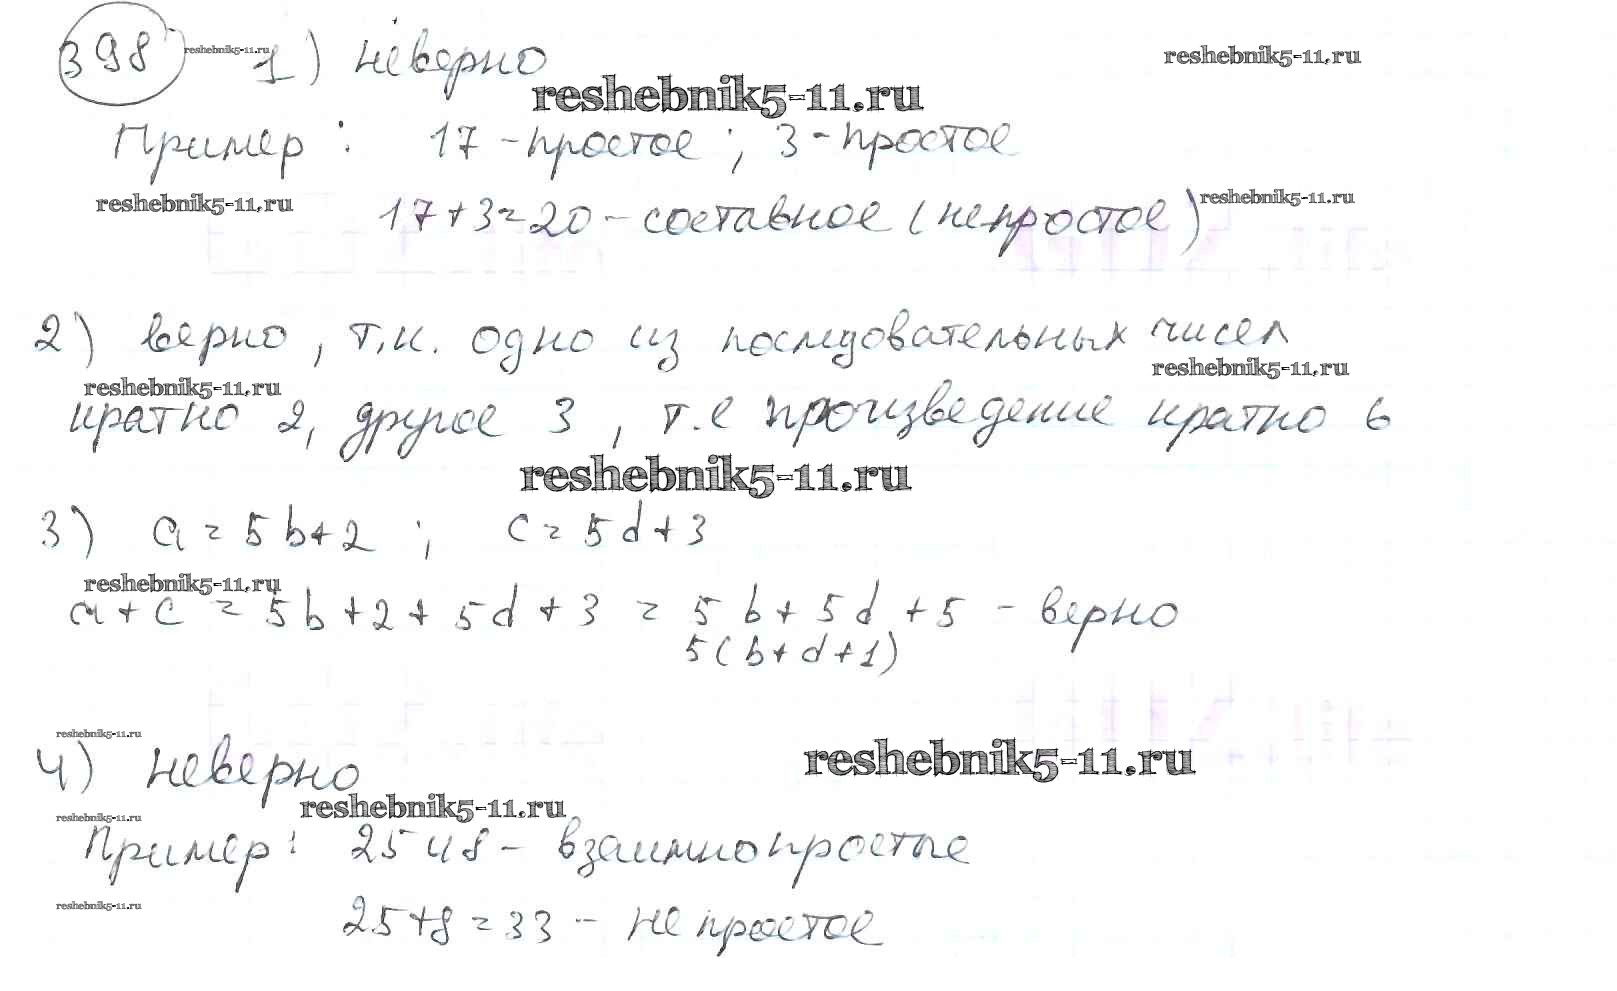 398 reshebnik5-11.ru 1) неверно reshebnik5-11.ru
reshebnik5-11.ru
Пример: 17 - простое; 3 - простое
reshebnik5-11.ru 17+3=20 - составное (непростое) reshebnik5-11.ru
2) верно, т.к. одно из последовательных чисел
reshebnik5-11.ru reshebnik5-11.ru
кратно 2, другое 3, т.е произведение кратно 6
reshebnik5-11.ru
3) a = 5b+2; c = 5d+3
reshebnik5-11.ru
a + c = 5b+2+5d+3 = 5b+5d+5 - верно
5(b+d+1)
reshebnik5-11.ru
4) неверно reshebnik5-11.ru
reshebnik5-11.ru reshebnik5-11.ru
Пример: 25 и 8 - взаимно простые
reshebnik5-11.ru
25+8=33 - не простое